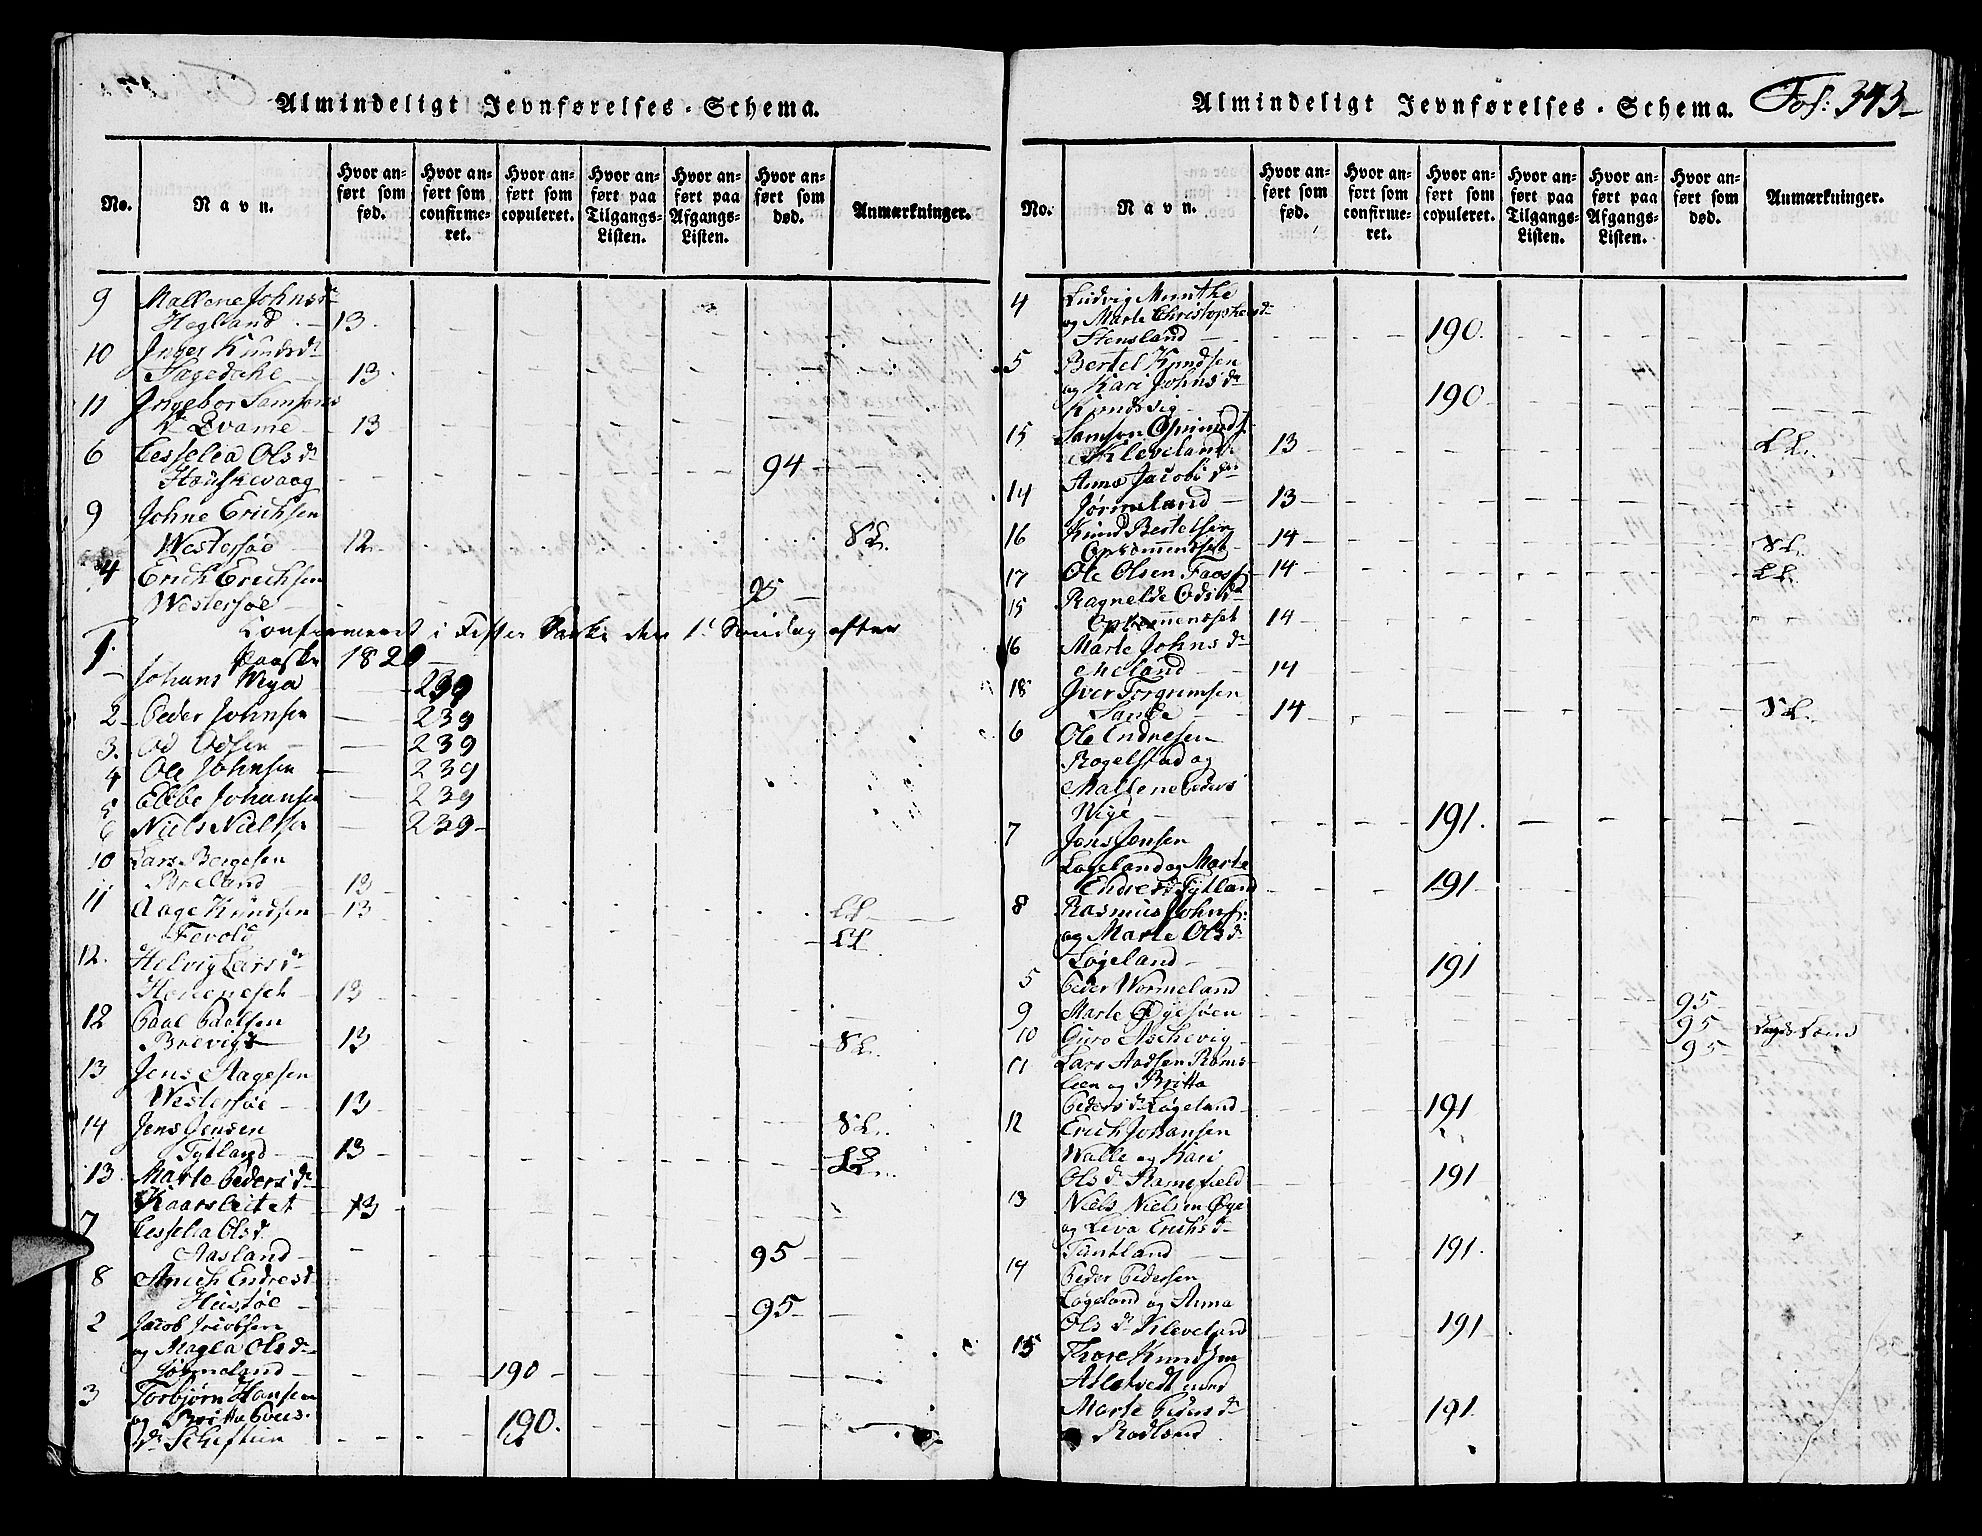 Almindeligt Jevnførelses-Schema.
No. Navn. Hvor anført som fød. Hvor anført som confirmeret. Hvor anført som copuleret. Hvor anført paa Tilgangs-Listen. Hvor anført paa Afgangs-Listen. Hvor anført som død. Anmærkninger.
9 Mallene Johnsdr
Hegland 13.
10 Inger Knudsdr
13.
11 Ingebor Samsons
dr 13
6 Cesselia Olsdr
94
9 Johne Erichsen
Westersøe 12. SL.
4 Erich Erichsen
Westersøe 95
Confirmeret i Fister Kirke den 1ste Søndag efter
Paaske 1820
1. Johans Wiga 239
2 Peder Johnsen 239
3. Od Odsen 239
4 Ole Johnsen 239
5 Ebbe Johansen 239
6 Niels Nielsen 239
10 Lars Bergesen
13
11 Aage Knudsen 13 LL
Fevold LL
12. Helvig Larsdr
13
12 Paal Paalsen
Brevig 13 SL.
13 Jens Aagesen
Westersøe 13
14 Jens Jensen SL.
Tytland 13 LL.
13 Marte Pedersdr
13
7 Cesselia Olsd.
Aasland 95
8 Endresd
Hussøe 95
2 Jacob Jacobsen
og Magla Olsdr
Jørmeland 190
3 Torbjørn Hansen
og Britta Povels
dr 190.
Almindeligt Jevnførelses-Schema. Fol: 343
No. Navn. Hvor anført som fød. Hvor anført som confirmeret. Hvor anført som copuleret. Hvor anført paa Tilgangs-Listen. Hvor anført paa Afgangs-Listen. Hvor anført som død. Anmærkninger.
4 Ludvig Munthe
og Marte Christophersdr
Stensland 190.
5 Bertel Knudsen
og Kari Johnsdr
Knudsvig 190
15 Samson
Kleveland 13 LL.
14 Anna Jacobsdr
Jørmeland 13
16 Knud Bertelsen
Opsommendset 14 SL.
17 Ole Olsen 14 LL.
15 Ragnelde Odsdr
Opsommendset 14
16 Marte Johnsdr
Meland 14
18 Iver Torgrimsen
Sande 14 SL.
6 Ole Endresen
Rogelstad og
Mallene Peders
Wige 191.
7 Jens Jensen
Løgeland og Marte
Endresdr Tytland 191
8 Rasmus Johns:
og Marte Olsdr
Løgeland 191
5 Peder Wormeland 95
9 Marte Øyesøen 95 Lægds Lem
10 Guro Aschevig 95
11 Lars Aadsen Roms-
leen og Britta
Pedersdr Løgeland 191
12 Erich Johansen
Walle og Kari
Olsdr 191
13 Niels Nielsen Øye
og Leva Erichsdr
Tuntland 191.
14 Peder Pedersen
Løgeland og Anna
Olsdr Kleveland 191
15 Thore Knudsen
Aslakvedt med
Marte Pedersdr 191.